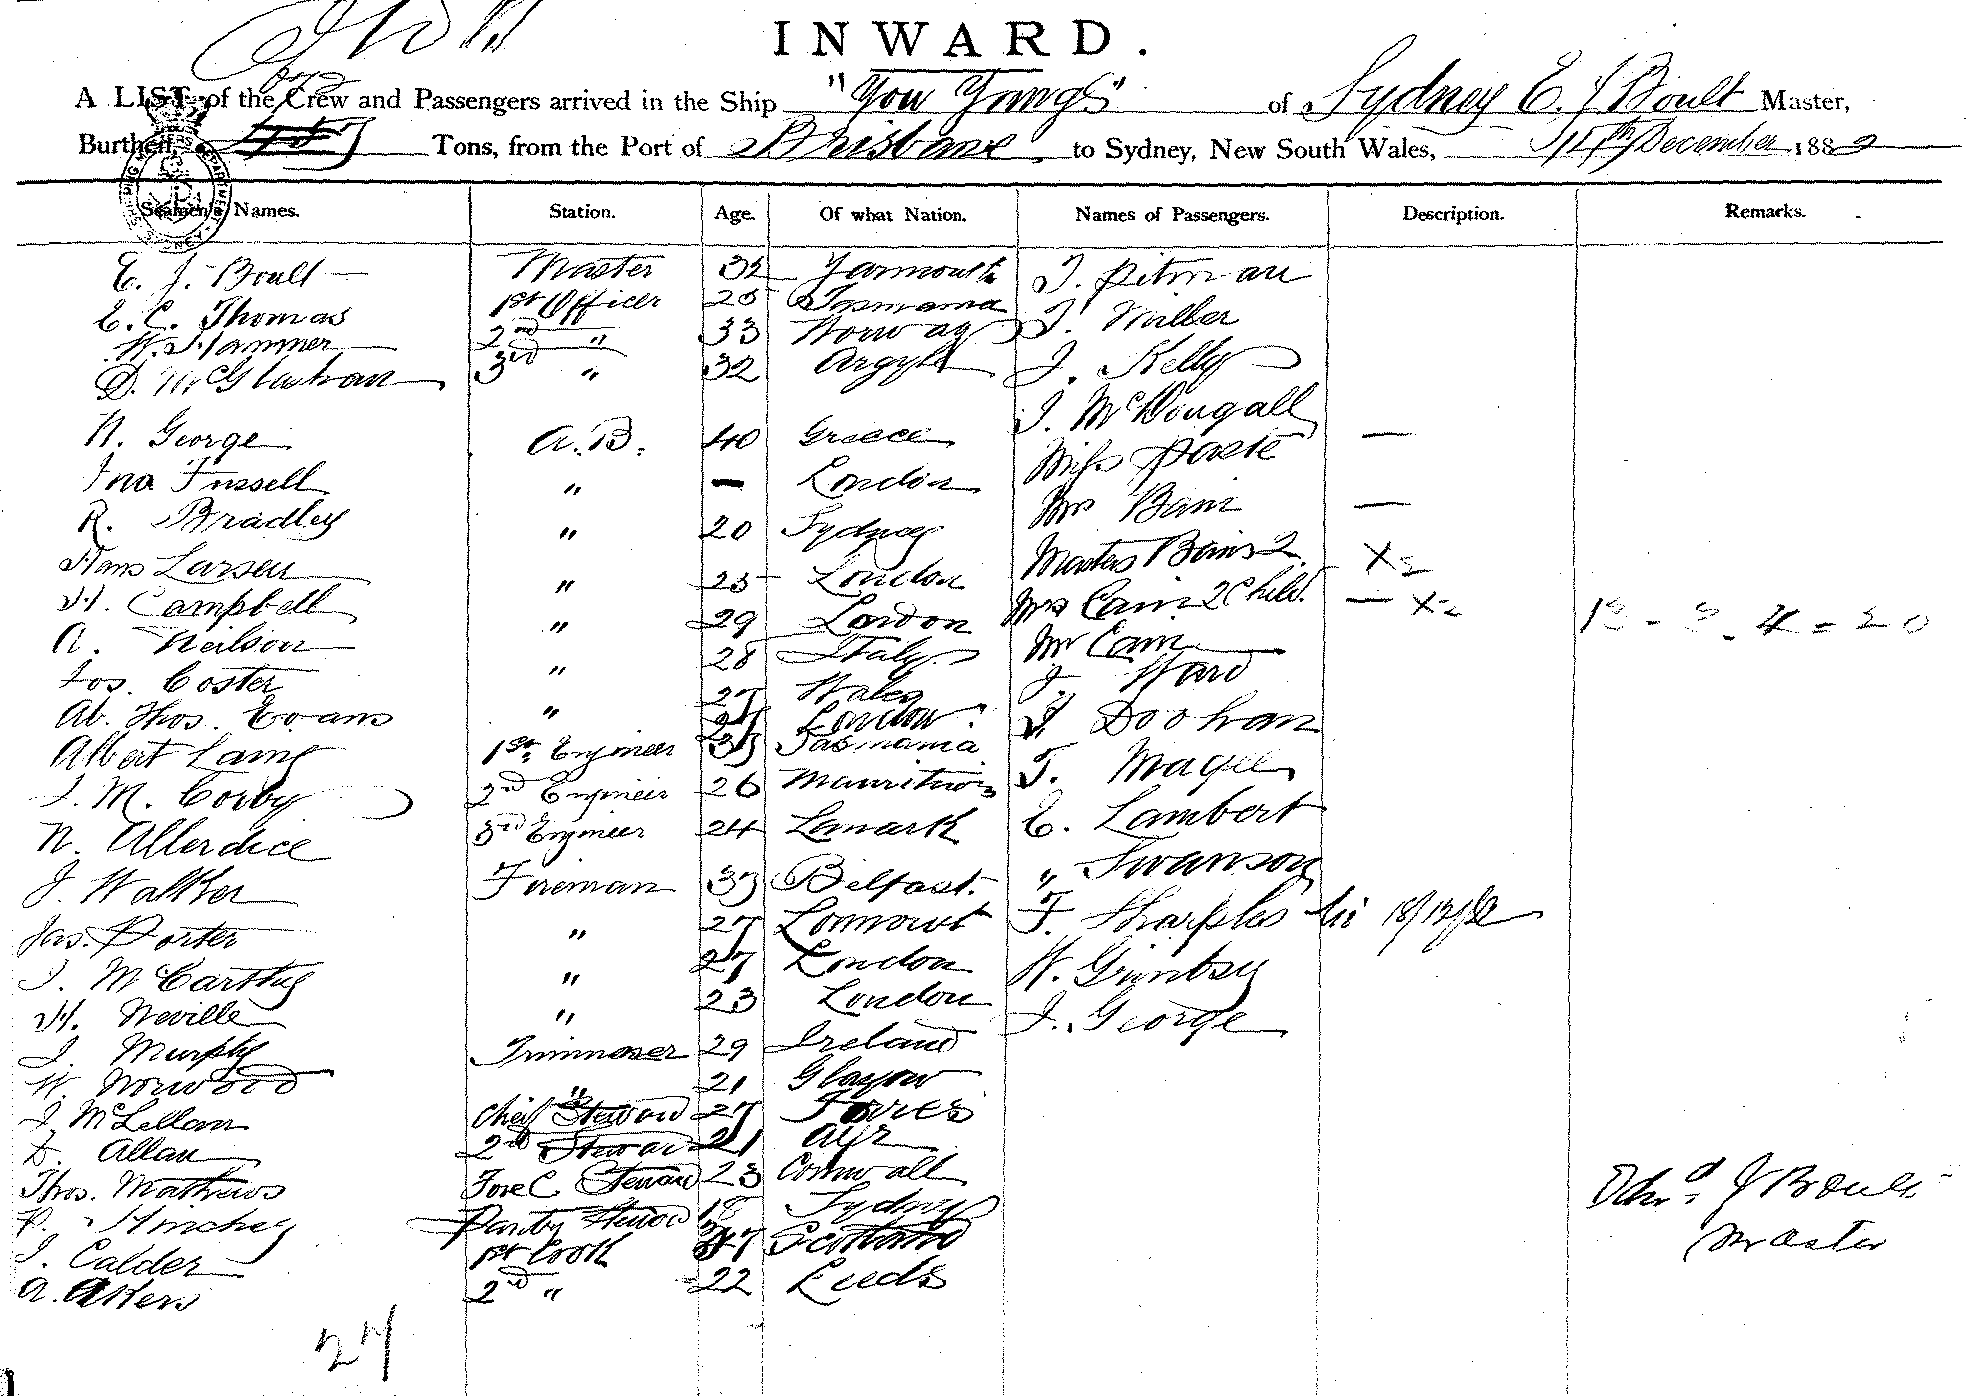 INWARD.
A LIST of the Crew and Passengers arrived in the Ship "You Yangs" of Sydney E. J Boult Master,
Burthen, Tons, from the Port of Brisbane to Sydney, New South Wales, 14th December 1882
Seamen's Names. Station. Age. Of what Nation. Names of Passengers. Description. Remarks.
E. J. Boult Master 32 Yarmouth J. Pitman
E. C. Thomas 1st Officer 25 Tasmania J. Wilber
W. Hammer 2nd " 33 Norway J. Kelly
D. McGlashan 3rd " 32 Argyle
J. McDougall
N. George A.B. 40 Greece — Miss
Jno Fussell " — London
R. Bradley " 20 Sydney Mrs Bain —
Hans Larsen " 25 London Masters Bains 2 X2
H. Campbell " 29 London Mrs Cain 2 Child. — X2
A. Neilson " 28 Italy Mr Cain 13 - 3 - 4 = 20
Jos. Coster " 27 Wales J Ward
Ab. Thos. Evans " 27 London Doohan
Albert Lang 1st Engineer 33 Tasmania
J. M. Corby 2nd Engineer 26 Mauritius T. Magee
N. Allerdice 3rd Engineer 24 Lanark E. Lambert
J. Walker Fireman 33 Belfast. " Swanson
Jas. Porter " 27 F. Sharples
J. McCarthy " 27 London W. Grimbsy
H. Neville " 23 London J. George
J. Murphy Trimmer 29 Ireland
W. Norwood " 21 Glasgow
J McLellan Chief Steward 27 Forres
D. Allan 2nd Steward 21 Ayr
Thos. Mathews Fore C. Steward 23 Cornwall
P. Hinchey Pantry Steward 18 Sydney
J. Calder 1st Cook 47 Scotland
A. Akers 2nd " 22 Leeds
Edwd. J Boult
Master
27